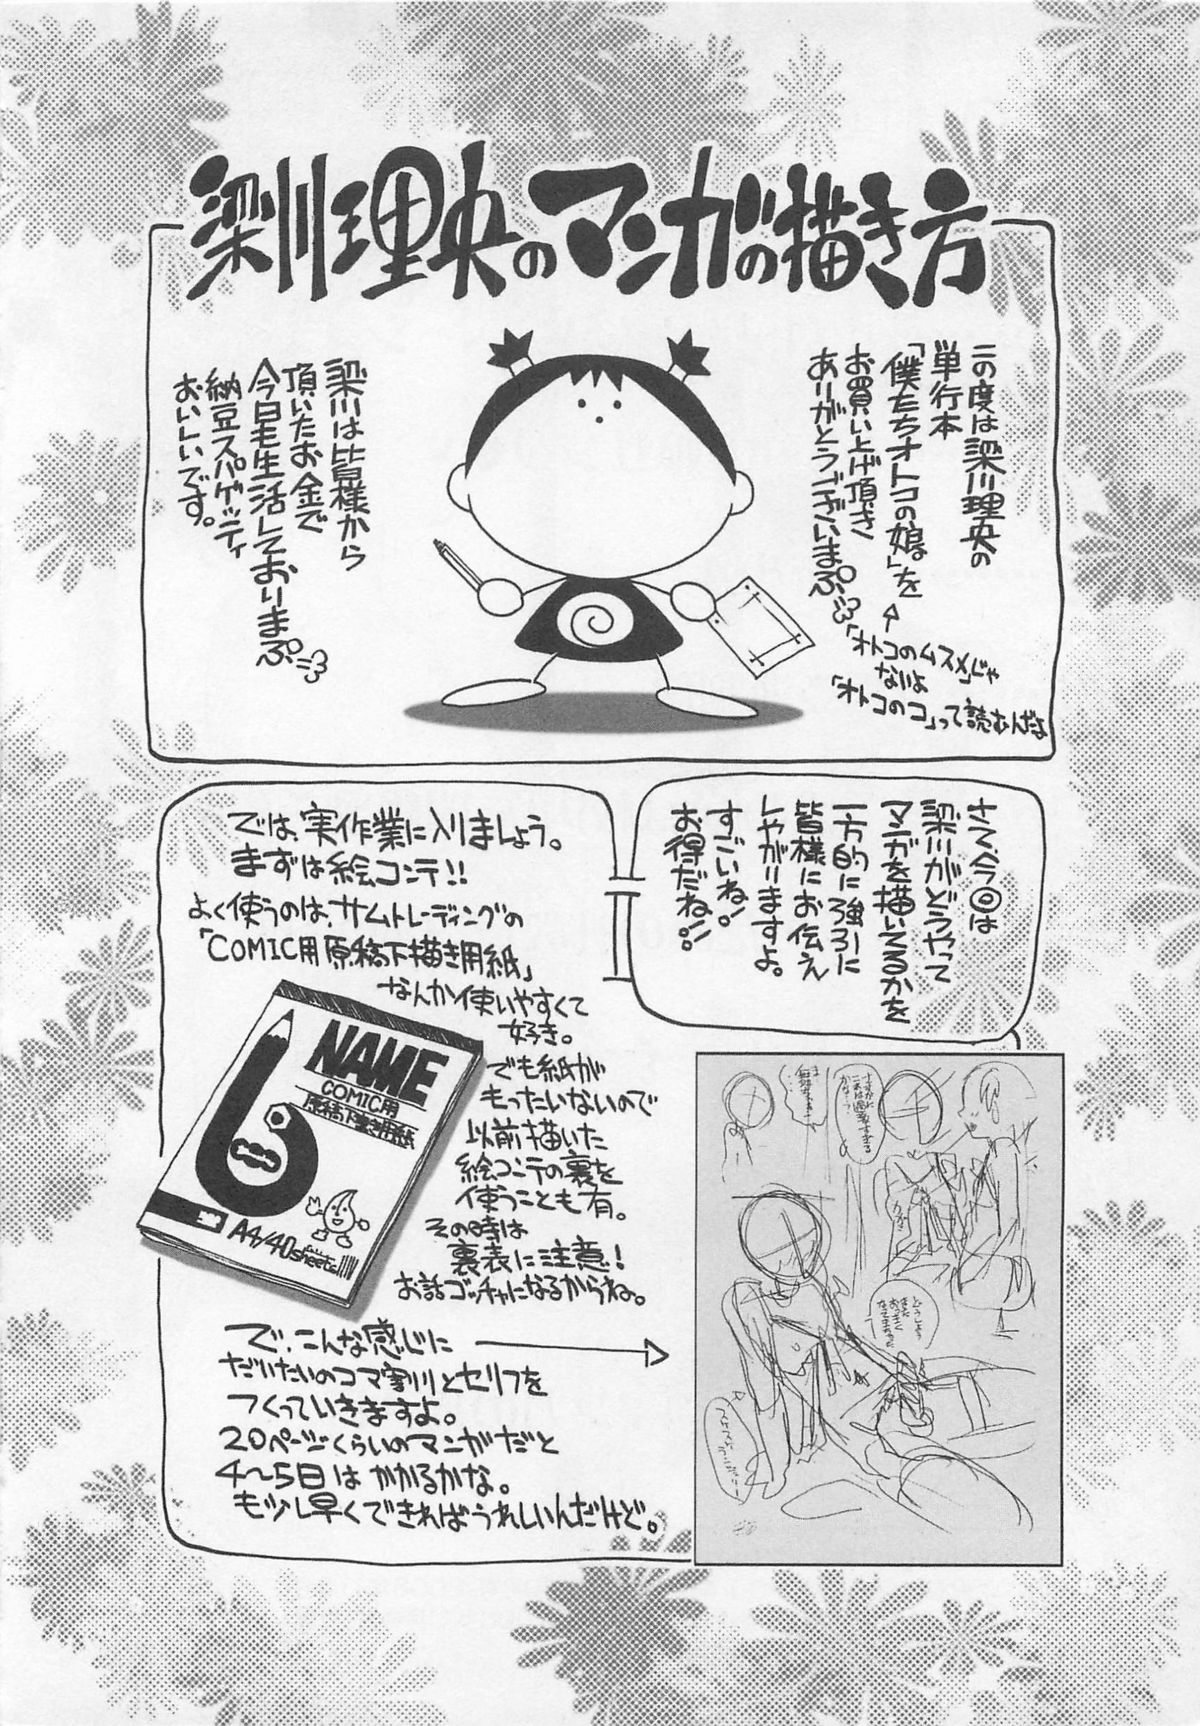 梁川理央のマンガの描き方
この度は梁川理央の
単行本
「僕たちオトコの娘」を
お買い上げ頂き
ありがとうございまぷ
「オトコのムスメ」じゃ
ないよ
「オトコのコ」って読むんだよ
梁川は皆様から
頂いたお金で
今日も生活しておりまぷ
納豆スパゲッティ
おいしいです。
さて、今回は
梁川がどうやって
マンガを描いてるかを
一方的に強引に
皆様にお伝え
しやがりますよ。
すごいね!
お得だね!!
では、実作業に入りましょう。
まずは絵コンテ!!
よく使うのは、サムトレーディングの
「COMIC用原稿下描き用紙」
なんか使いやすくて
好き。
NAME
COMIC用
原稿下書き用紙
A4/40sheets
でも紙が
もったいないので
以前描いた
絵コンテの裏を
使うことも有。
その時は
裏表に注意!
お話ゴッチャになるからね。
で、こんな感じに
だいたいのコマ割りとセリフを
つくっていきますよ。
20ページくらいのマンガだと
4〜5日はかかるかな。
も少し早くできればうれしいんだけど。